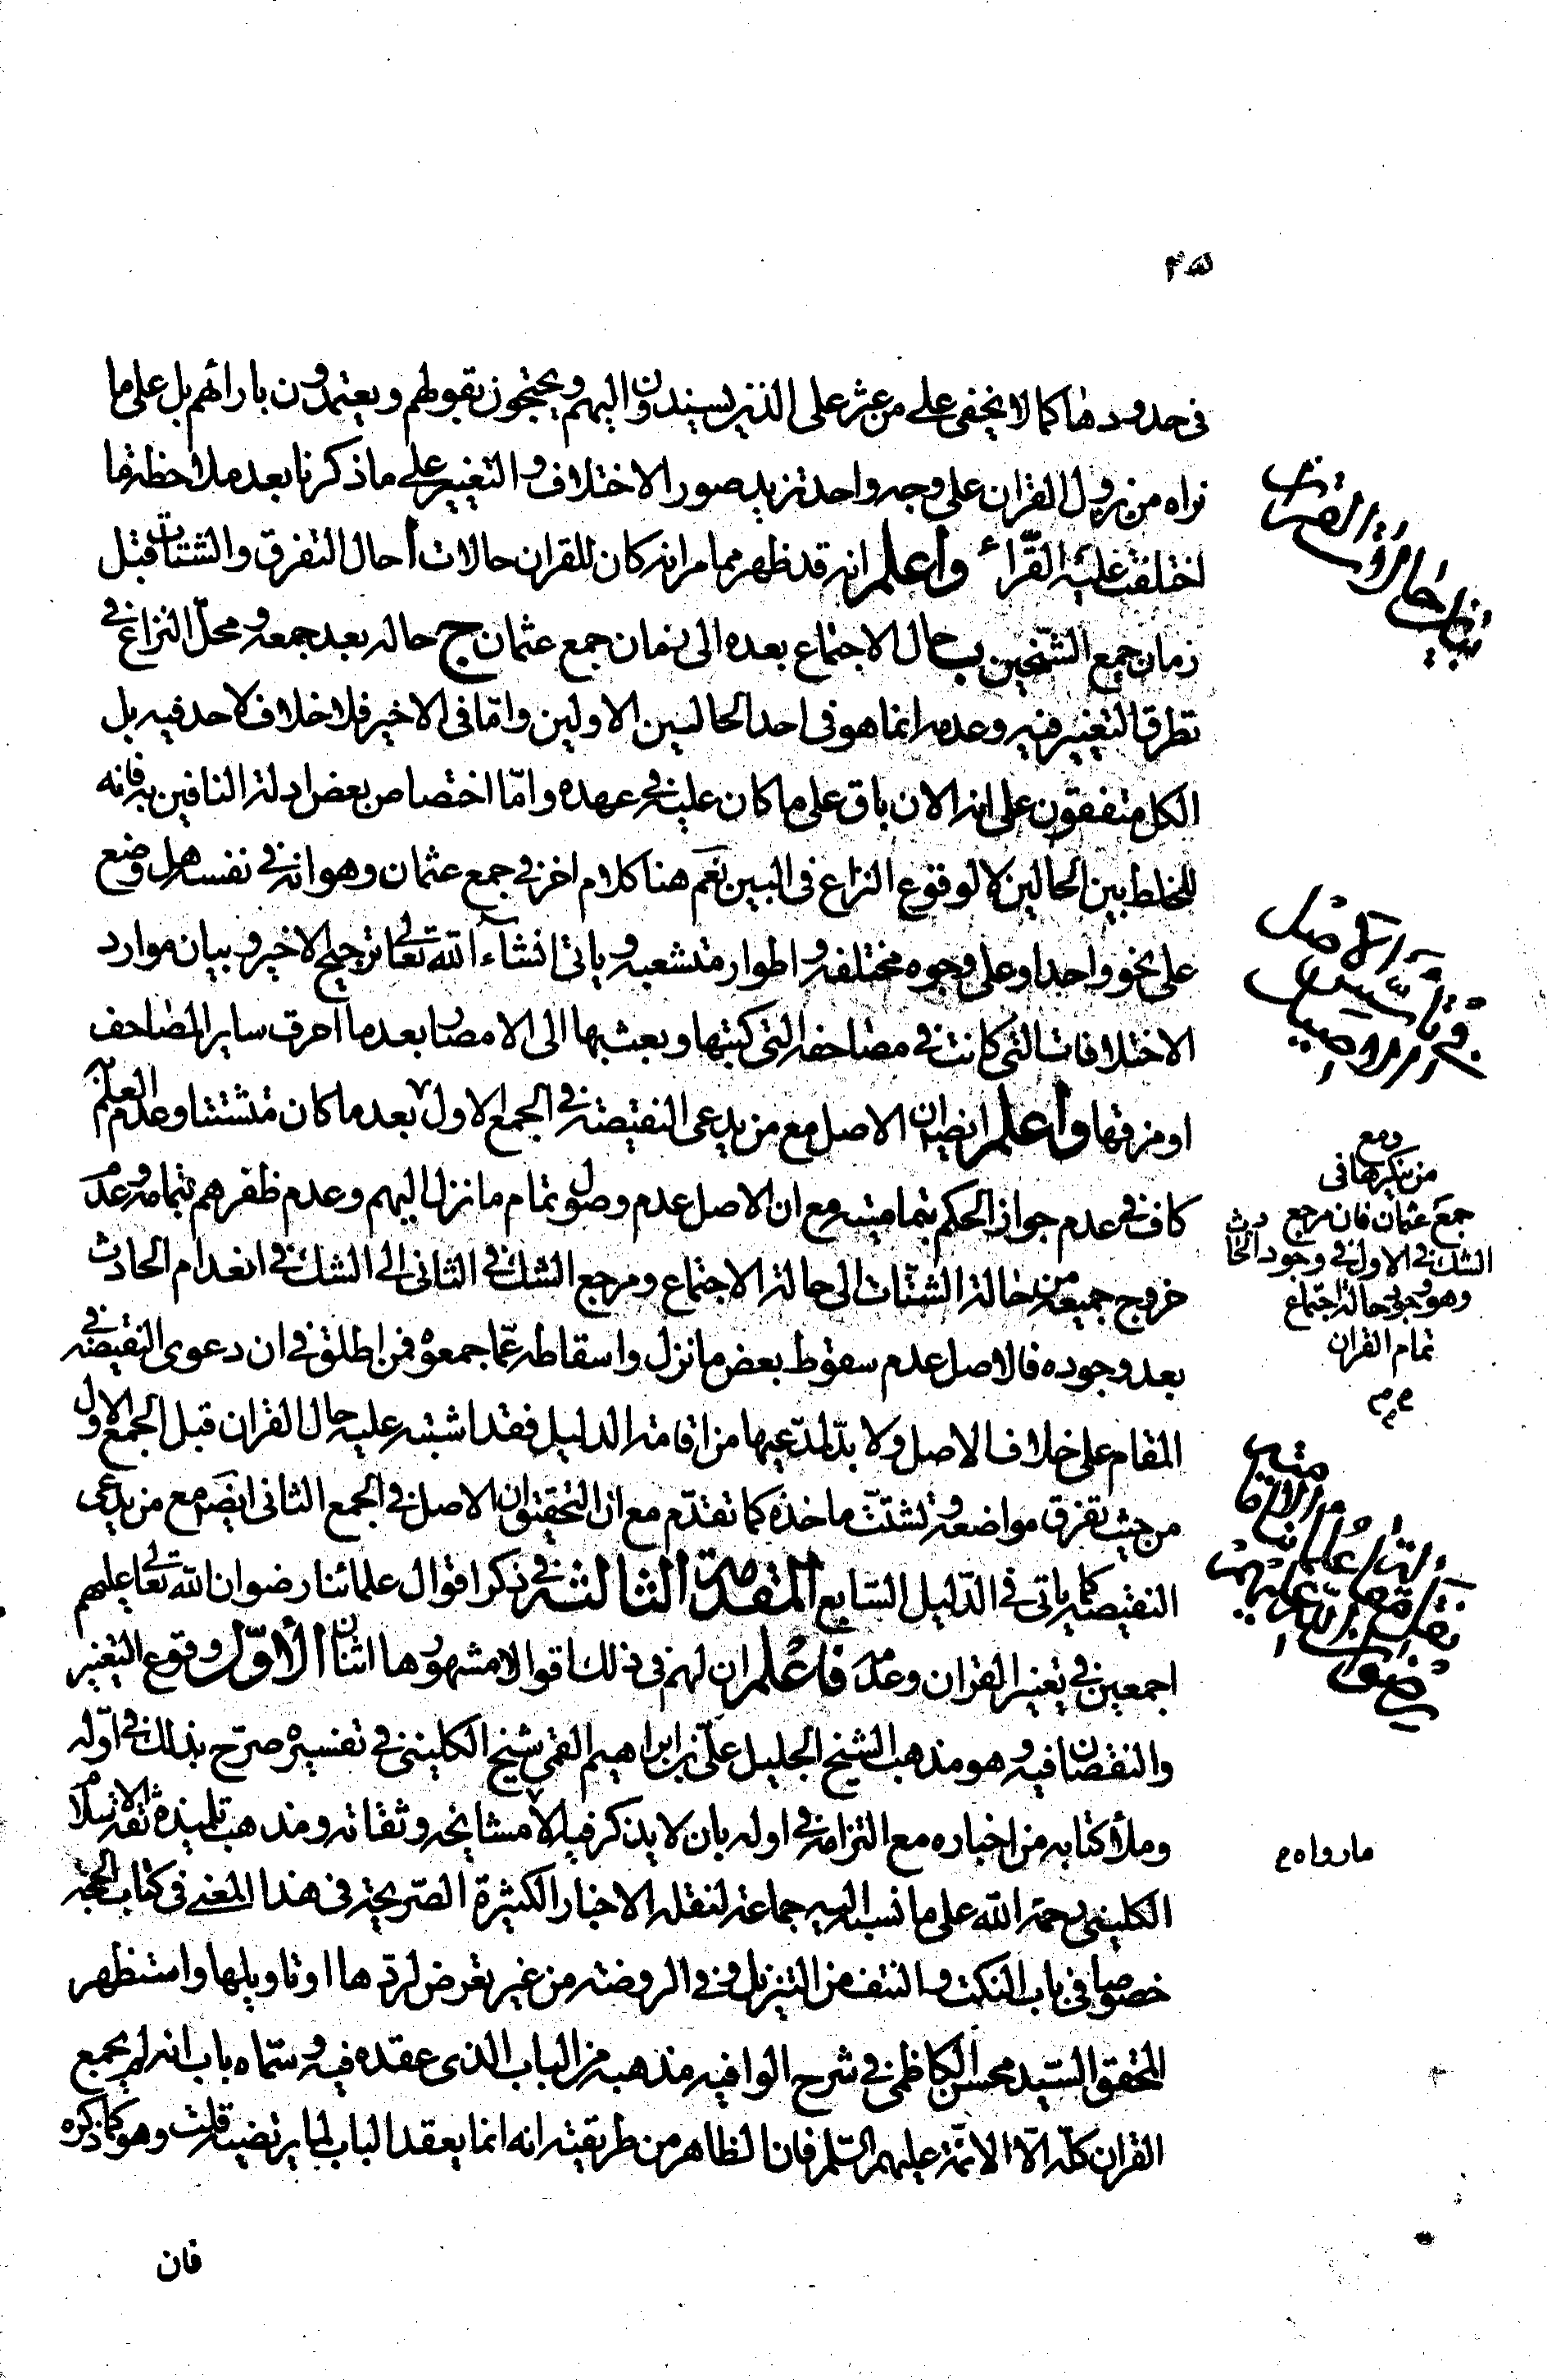 ٢٥
فى حدودها كما لا يخفى على من عثر على الذين يسندون اليهم ويحتجون بقولهم ويعتمدون بارائهم بل على ما
نراه من نزول القران على وجه واحد تزيد صور الاختلاف والتغيير على ما ذكرنا بعد ملاحظة ما
اختلفت عليه القرّاء واعلم انه قد ظهر مما مر انه كان للقران حالات أ حال التفرق والتشتات قبل
زمان جمع الشيخين ب حال الاجتماع بعده الى زمان جمع عثمان ج حاله بعد جمعه ومحلّ النزاع فى
تطرق التغيير فيه وعدمه انما هو فى احد الحالين الاولين وامّا فى الاخير فلا خلاف لاحد فيه بل
الكل متفقون على انه الان باق على ما كان عليه فى عهده وامّا اختصاص بعض ادلة النافين به فانه
للخلط بين الحالين لا لوقوع النزاع فى البين نعم هنا كلام اخر فى جمع عثمان وهو انه فى نفسه هل وضع
على نحو واحد او على وجوه مختلفة واطوار متشعبة وياتى انشاء الله تعالى ترجيح الاخير وبيان موارد
الاختلافات التى كانت فى مصاحفه التى كتبها وبعث بها الى الامصار بعد ما احرق ساير المصاحف
او مزقها واعلم ايضا ان الاصل مع من يدعى النقيصة فى الجمع الاول بعد ما كان متشتتا وعدم العلم
كاف فى عدم جواز الحكم بتماميته مع ان الاصل عدم وصول تمام ما نزل اليهم وعدم ظفرهم بتمامه وعدم
خروج جميعه من حالة الشتات الى حالة الاجتماع ومرجع الشك فى الثانى الى الشك فى انعدام الحادث
بعد وجوده فالاصل عدم سقوط بعض ما نزل واسقاطه عمّا جمعوه فمن اطلق فى ان دعوى النقيصة فى
المقام على خلاف الاصل ولا بدّ لمدّعيها من اقامة الدليل فقد اشتبه عليه حال القران قبل الجمع الاول
من حيث تفرق مواضعه وتشتّت ماخذه كما تقدّم مع ان التحقيق ان الاصل فى الجمع الثانى ايضا مع من يدعى
النقيصة كما ياتى فى الدّليل السّابع المقدمة الثالثة فى ذكر اقوال علمائنا رضوان الله تعالى عليهم
اجمعين فى تغيير القران وعدمه فاعلم ان لهم فى ذلك اقوالا مشهورها اثنان الأوّل وقوع التغيير
والنقصان فيه وهو مذهب الشيخ الجليل علىّ بن ابراهيم القمى شيخ الكلينى فى تفسيره صرّح بذلك فى اوّله
وملأ كتابه من اخباره مع التزامه فى اوله بان لا يذكر فيه الا مشائخه وثقاته ومذهب تلميذه ثقة الاسلام
الكلينى رحمة الله على ما نسبه اليه جماعة لنقله الاخبار الكثيرة الصّريحة فى هذا المعنى فى كتاب الحجة
خصوصا فى باب النكت والنتف من التنزيل وفى الروضة من غير تعرض لردّها او تاويلها واستظهر
المحقق السّيد محسن الكاظمى فى شرح الوافيه مذهبه من الباب الذى عقده فيه وسمّاه باب انه لم يجمع
القران كلّه الّا الائمّة عليهم السّلم فان الظاهر من طريقته انه انما يعقد الباب لما يرتضيه قلت وهو كما ذكره
فان
ومع
من ينكرها فى
جمع عثمان فان مرجع
الشك فى الاول فى وجود الحادث
وهو جزئى حالة اجتماع
تمام القران
ما رواه م